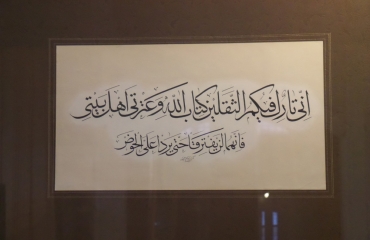 انی تارک فیکم الثقلین کتاب الله و عترتی اهل بیتی
فانهما لن یفترقا حتی یردا علی الحوض